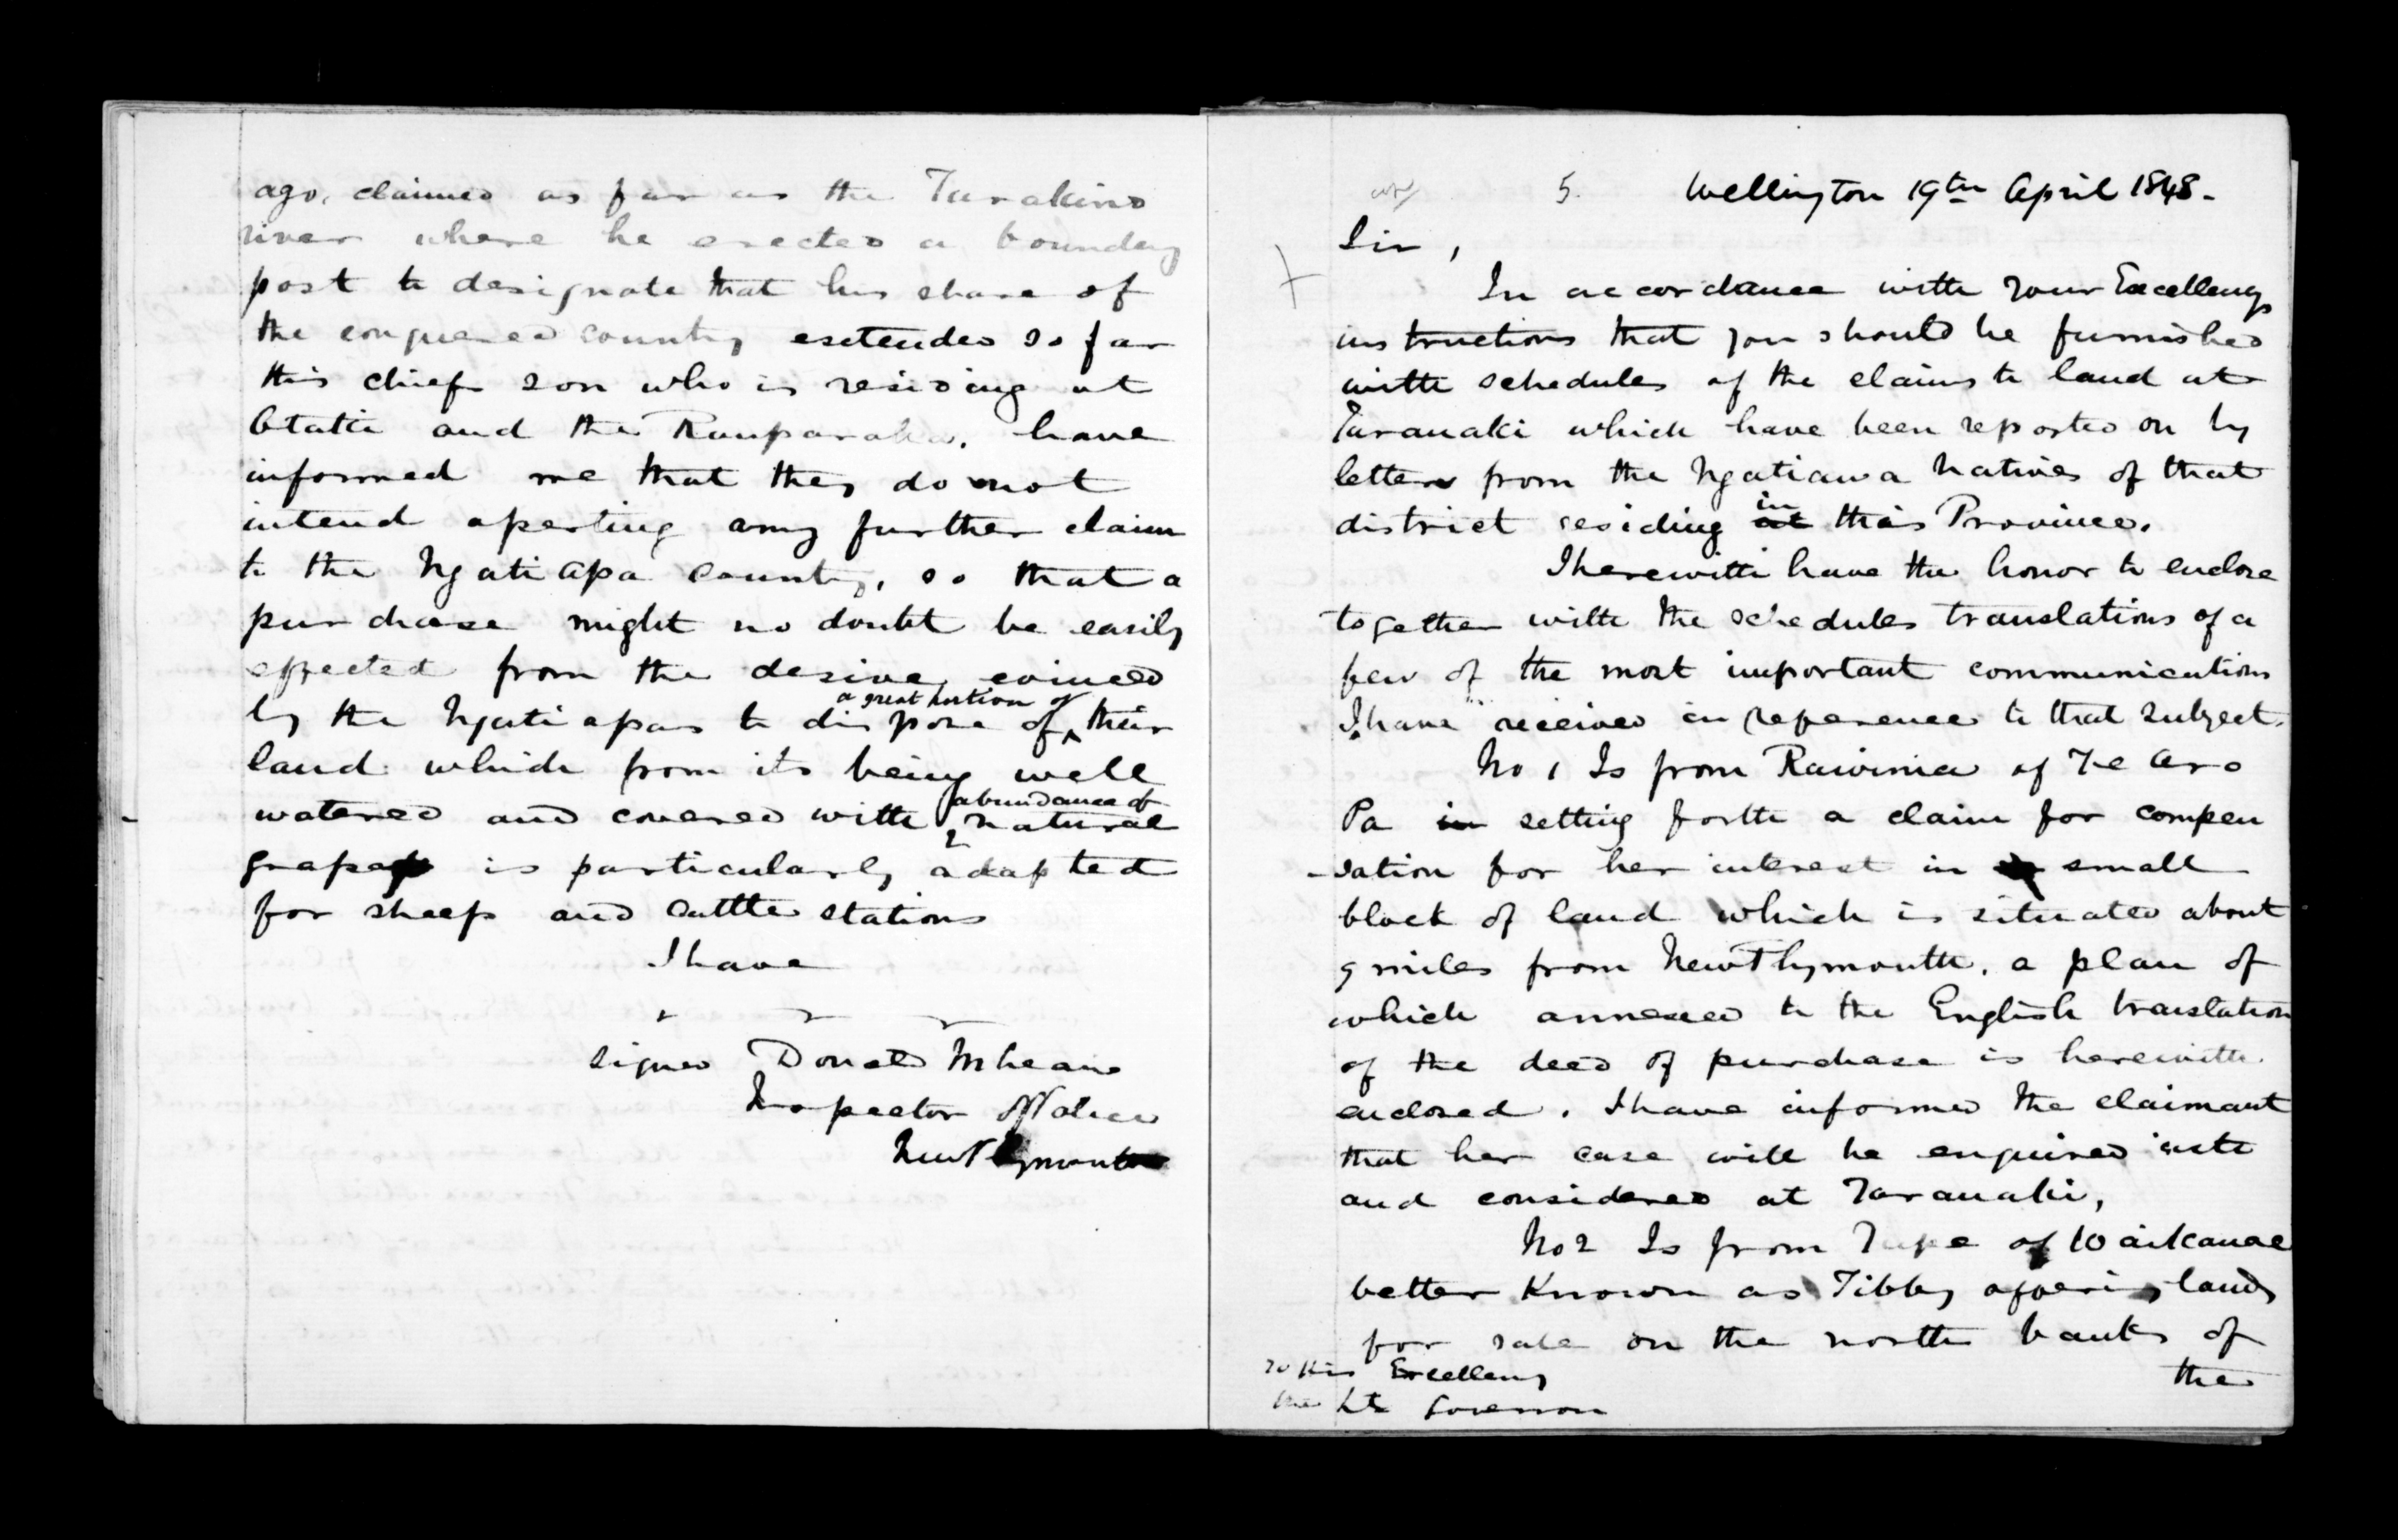 ago, claimed as far as the Turakino
river where he erected a boundary
post to designate that his share of
the conquered country extended so far
this chiefs son who is residing at
Otaki and the Rauparaha, have
informed me that they do not
intend asserting any further claim
to the Ngati Apa country, so that a
purchase might no doubt be easily
effected from the desire evinced
a great portion of
by the Ngatiapas to dispose of their
land which from its being well
abundance of
watered and covered with natural
grass is particularly adapted
for sheep and cattle stations
I have
signed Donald McLean
Inspector of Police
New Plymouth
5. Wellington 19th April 1848.
Sir,
In accordance with your Excellencys
instructions that you should be furnished
with schedules of the claims to land at
Taranaki which have been reported on by
letters from the Ngatiawa natives of that
in
district residing at this Province.
I herewith have the honor to enclose
together with the schedules translations of a
few of the most important communications
I have received in reference to that subject.
No 1 Is from Rawinia of Te Aro
Pa in setting forth a claim for compen
-sation for her interest in small
block of land which is situated about
9 miles from New Plymouth, a plan of
which annexed to the English translation
of the deed of purchase is herewith
enclosed. I have informed the claimant
that her case will be enquired into
and considered at Taranaki,
No 2 Is from Tupe of Waikanae
better Known as Tibby offering land
for sale on the north banks of
the
To His Excellency
the Lt Governor